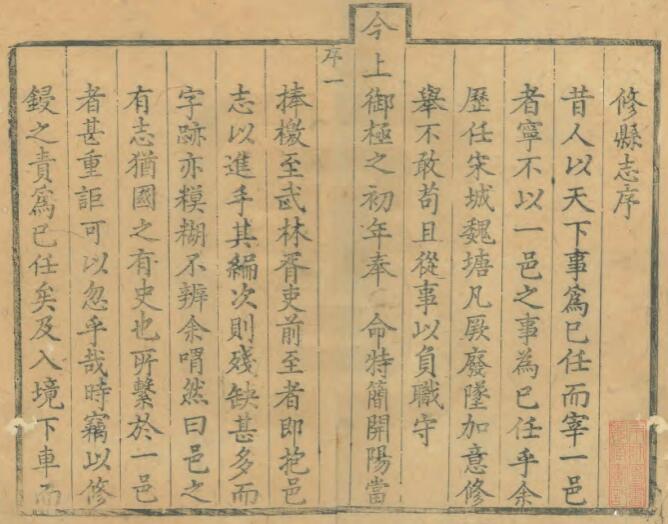 修縣志序
昔人以天下事爲已任而宰一邑
者寧不以一邑之事為已任乎余
歷任宋城魏塘凡厥廢墜加意修
舉不敢苟且從事以負職守
今上御極之初年奉 命特簡開陽當
序一
捧檄至武林胥吏前至者即抱邑
志以進乎其編次則殘缺甚多而
字跡亦糢糊不辨余喟然曰邑之
有志猶國之有史也所繫於一邑
者甚重詎可以忽乎哉時竊以修
鋟之責爲已任矣及入境下車而